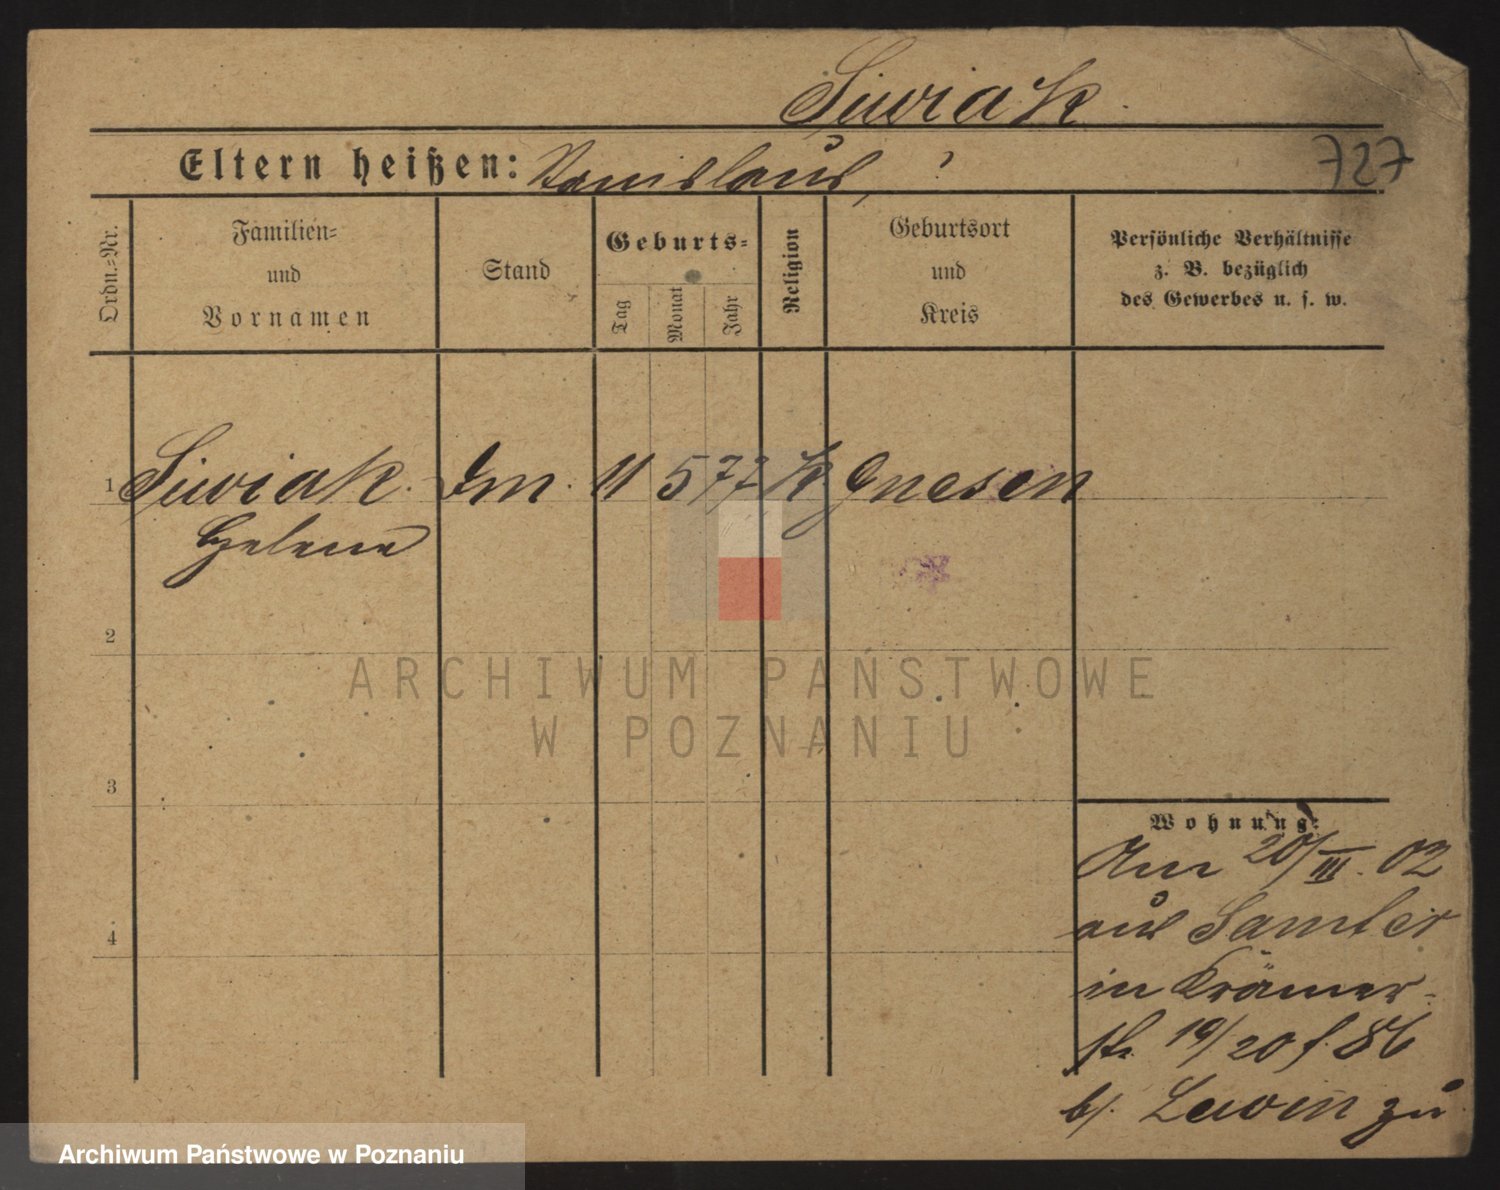 Siwiak.
Eltern heißen: Stanislaus, ?
727
Ordn.-Nr.
Familien-
und
Vornamen
Stand
Geburts-
Tag
Monat
Jahr
Religion
Geburtsort
und
Kreis
Persönliche Verhältnisse
z. B. bezüglich
des Gewerbes u. s. w.
1 Siwiak. 11 5 77 K Gnesen
Helene
2
ARCHIWUM PAŃSTWOWE
W POZNANIU
3
Wohnung:
Am 20/III. 02
aus Samter
in Krämer-
4
str. 19/20 f. 86
b/. Lewin zu
Archiwum Państwowe w Poznaniu